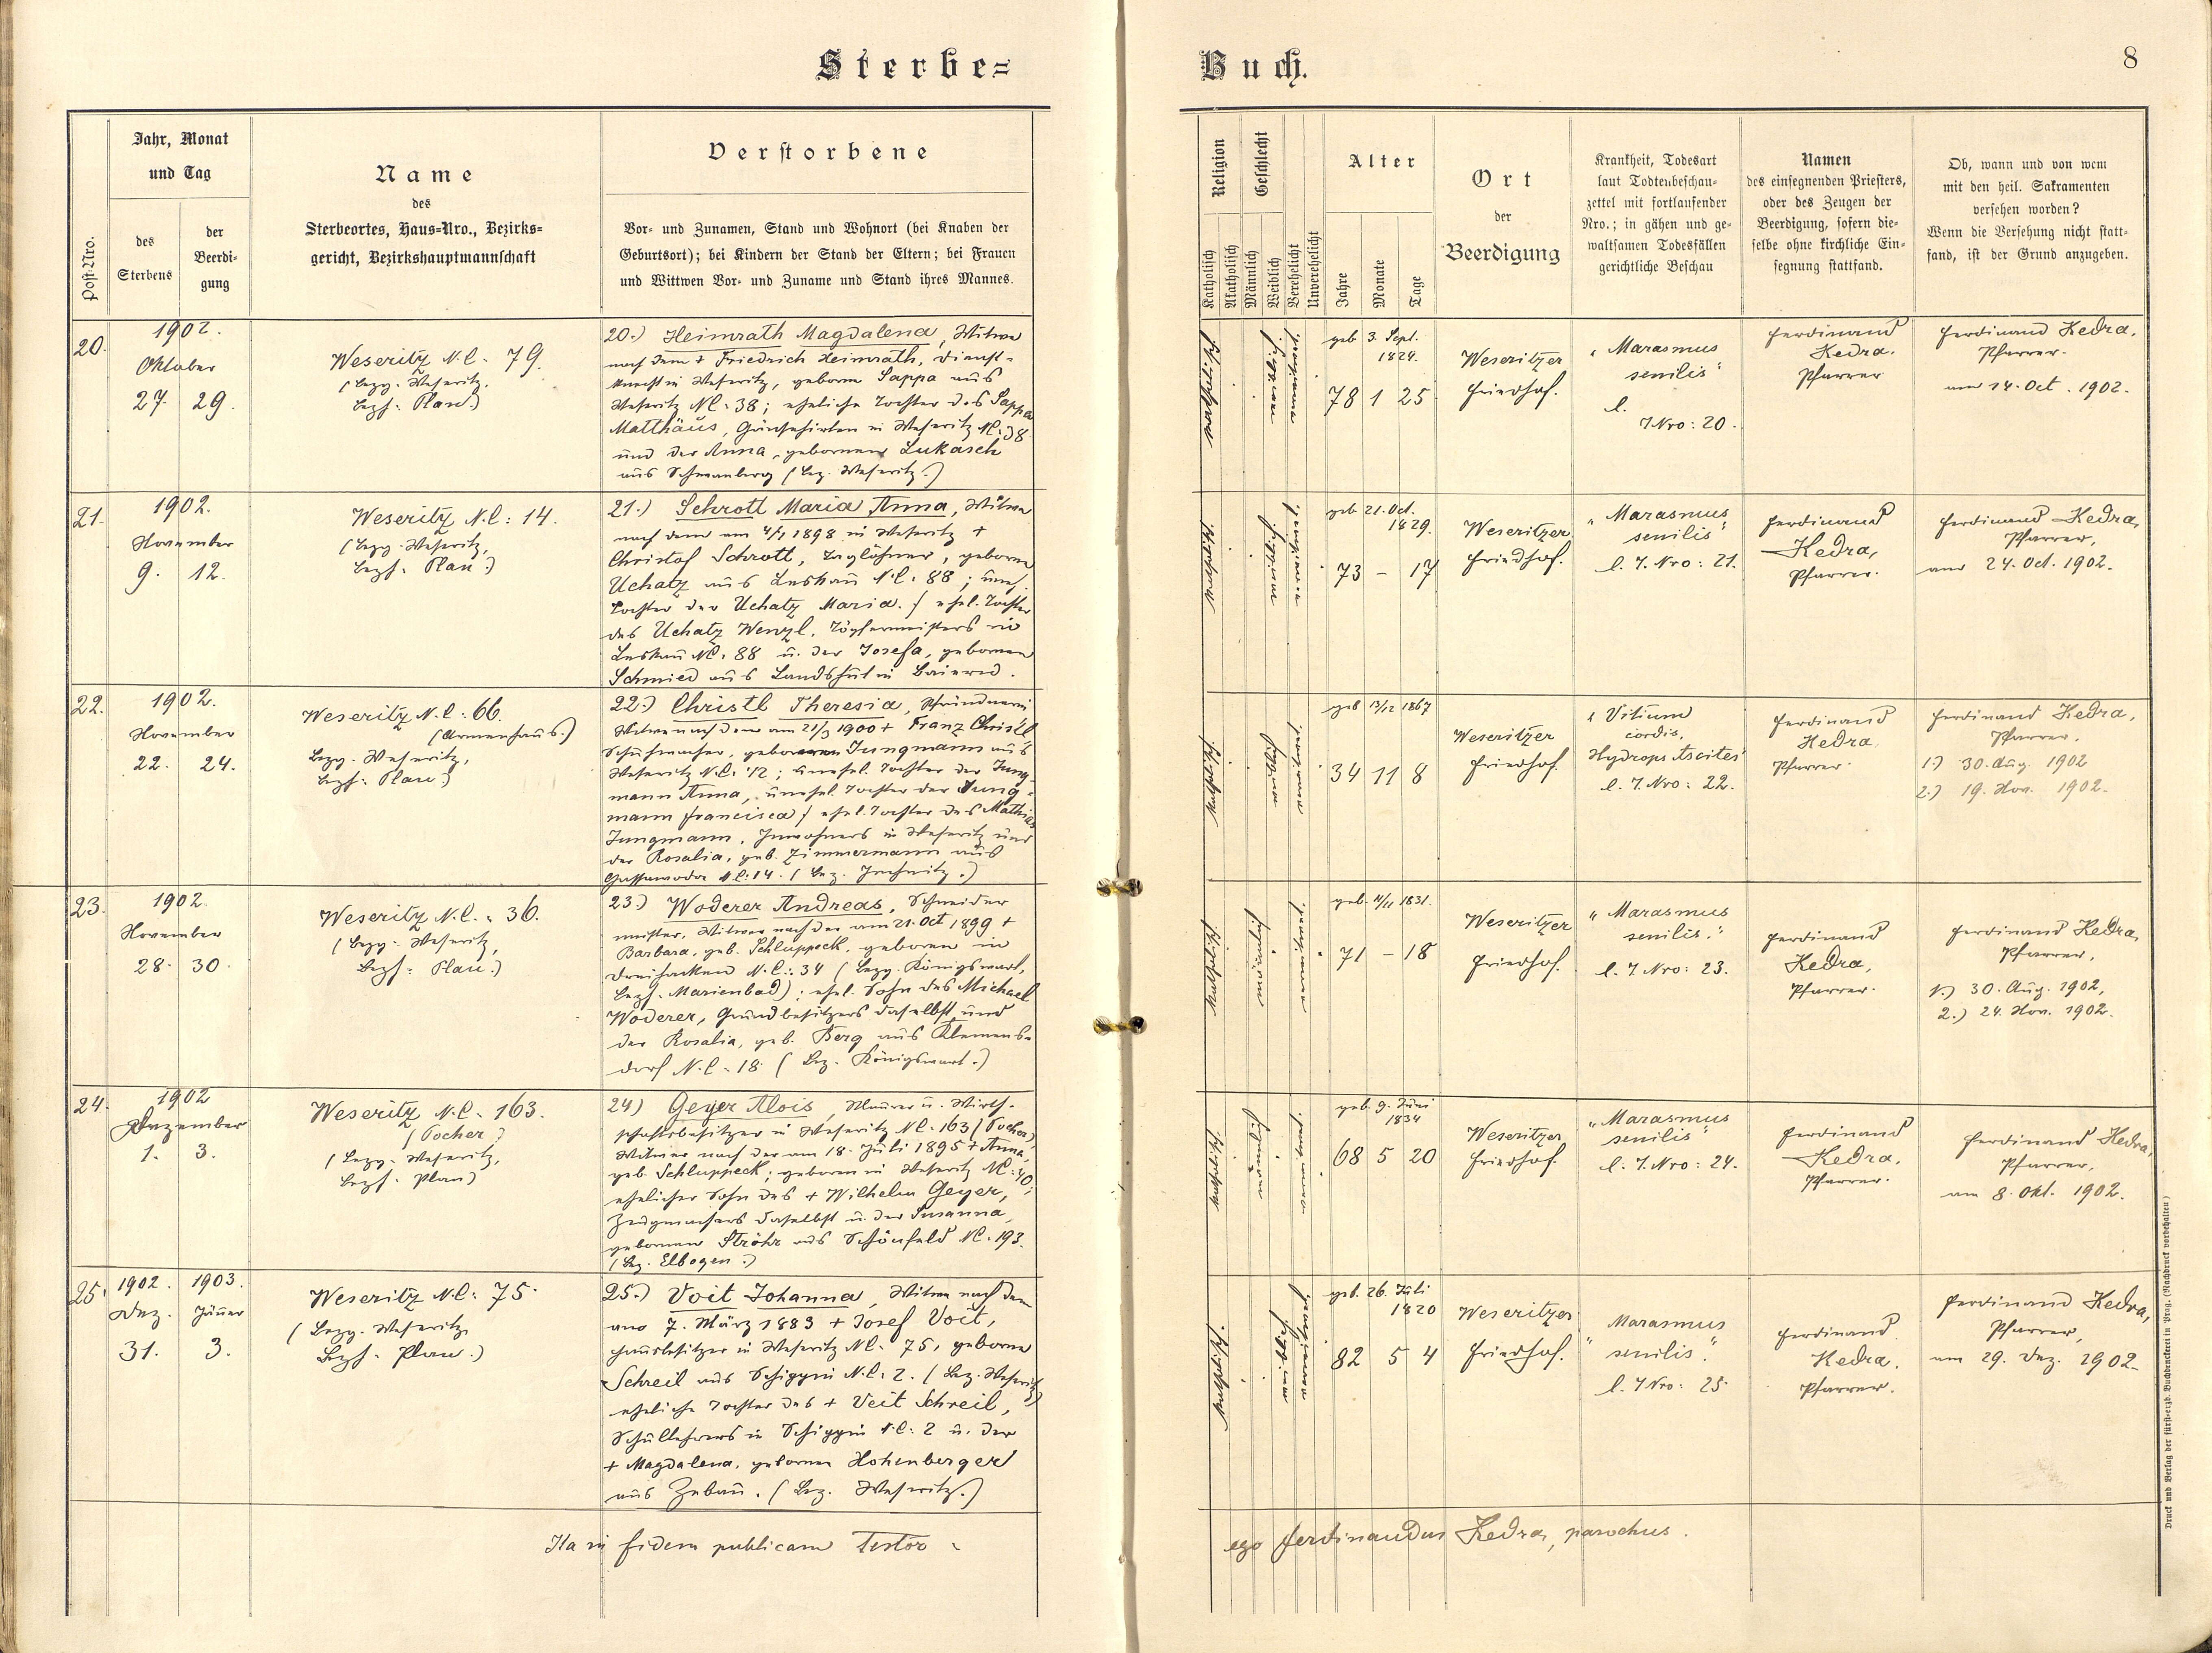 Sterbe=
Buch.
8
Post-Nro.
Jahr, Monat
und Tag
des
Sterbens
der
Beerdi-
gung
Name
des
Sterbeortes, Haus-Nro., Bezirks-
gericht, Bezirkshauptmannschaft
Verstorbene
Vor- und Zunamen, Stand und Wohnort (bei Knaben der
Geburtsort); bei Kindern der Stand der Eltern; bei Frauen
und Wittwen Vor- und Zuname und Stand ihres Mannes.
Religion
Katholisch
Akatholisch
Geschlecht
Männlich
Weiblich
Verehelicht
Unverehelicht
Alter
Jahre
Monate
Tage
Ort
der
Beerdigung
Krankheit, Todesart
laut Todtenbeschau-
zettel mit fortlaufender
Nro.; in gähen und ge-
waltsamen Todesfällen
gerichtliche Beschau
Namen
des einsegnenden Priesters,
oder des Zeugen der
Beerdigung, sofern die-
selbe ohne kirchliche Ein-
segnung stattfand.
Ob, wann und von wem
mit den heil. Sakramenten
versehen worden?
Wenn die Versehung nicht statt-
fand, ist der Grund anzugeben.
20.
1902.
Oktober
27. 29.
Weseritz N.C. 79.
(Bezg. Weseritz,
Bezh. Plan.)
20.) Heimrath Magdalena, Witwe
nach dem + Friedrich Heimrath, Dienst-
knecht in Weseritz, geborne Sappa aus
Weseritz NC: 38; eheliche Tochter des Sappa
Matthäus, Gänsehirten in Weseritz NC: 38
und der Anna, gebornen Lukasch
aus Schwanberg (Bez. Weseritz.)
katholisch
weiblich
geb 3. Sept.
1824.
78 1 25.
Weseritzer
Friedhof.
"Marasmus
senilis"
l.
T Nro: 20.
Ferdinand
Kedra.
Pfarrer
Ferdinand Kedra,
Pfarrer.
am 14. Oct. 1902.
21.
1902.
November
9. 12.
Weseritz N.C: 14.
(Bezg. Weseritz,
Bezh. Plan.)
21.) Schrott Maria Anna, Witwe
nach dem am 4/1 1898 in Weseritz +
Christof Schrott, Taglöhner, geborne
Uchatz aus Leskau N.C: 88; uneh.
Tochter der Uchatz Maria. / ehel. Tochter
des Uchatz Wenzl, Töpfermeisters in
Leskau NC: 88 u. der Josefa, gebornen
Schmied aus Landshut in Baiern.
katholisch
weiblich
geb 21. Oct.
1829.
73 – 17
Weseritzer
Friedhof.
"Marasmus
senilis"
l. T. Nro: 21.
Ferdinand
Kedra,
Pfarrer.
Ferdinand Kedra,
Pfarrer,
am 24. Oct. 1902.
22.
1902.
November
22. 24.
Weseritz N.C: 66.
(Armenhaus.)
Bezg. Weseritz,
Bezh. Plan.)
22.) Christl Theresia, Pfründnerin
Witwe nach dem am 21/3 1900 + Franz Christl
Schuhmacher, geborenen Jungmann aus
Weseritz N.C: 12; unehel. Tochter der Jung-
mann Anna, unehel. Tochter der Jung-
mann Francisca / ehel. Tochter des Mathias
Jungmann, Inwohners in Weseritz und
der Rosalia, geb. Zimmermann aus
NC: 14. (Bez.
katholisch
weiblich
geb 13/12 1867
34 11 8
Weseritzer
Friedhof.
"Vitium
cordis,
Hydrops Ascites"
l. T. Nro: 22.
Ferdinand
Kedra
Pfarrer
Ferdinand Kedra,
Pfarrer,
1.) 30. Aug. 1902
2.) 19. Nov. 1902.
23.
1902.
November
28. 30.
Weseritz N.C.: 36.
(Bezg. Weseritz,
Bezh. Plan.)
23.) Woderer Andreas, Schneider
meister, Witwer nach der am 21. Oct 1899 +
Barbara, geb. Schluppeck, geboren in
Dreihacken N.C.: 34 (Bezg. Königswart,
Bezh. Marienbad); ehel. Sohn des Michael
Woderer, Grundbesitzers daselbst und
der Rosalia, geb. Berg aus Klemens-
dorf N.C. 18. (Bez. Königswart.)
katholisch
männlich
geb. 11/11 1831.
71 – 18
Weseritzer
Friedhof.
"Marasmus
senilis."
l. T Nro: 23.
Ferdinand
Kedra,
Pfarrer.
Ferdinand Kedra,
Pfarrer,
1.) 30. Aug. 1902,
2.) 24. Nov. 1902.
24.
1902
Dezember
1. 3.
Weseritz N.C. 163.
(Pocher)
(Bezg. Weseritz,
Bezh. Plan)
24) Geyer Alois, Maurer u. Wirth-
schaftsbesitzer in Weseritz NC. 163 (Pocher)
Witwer nach der am 18. Juli 1895 + Anna,
geb. Schluppeck; geboren in Weseritz NC: 40;
ehelicher Sohn des + Wilhelm Geyer,
Zeugmachers daselbst u. der Susanna,
gebornen Ströhr aus Schönfeld NC. 193.
(Bez. Elbogen.)
katholisch
männlich
geb. 9. Juni
1834
68 5 20
Weseritzer
Friedhof.
"Marasmus
senilis"
l. T. Nro: 24.
Ferdinand
Kedra,
Pfarrer.
Ferdinand Kedra,
Pfarrer,
am 8. Okt. 1902.
25.
1902. 1903.
Dez. Jänner
31. 3.
Weseritz NC: 75.
(Bezg. Weseritz
Bezh. Plan.)
25.) Voit Johanna, Witwe nach dem
am 7. März 1883 + Josef Voit,
Hausbesitzer in Weseritz NC. 75, geborne
Schreil aus Schippin N.C: 2. (Bez. Weseritz)
eheliche Tochter des + Veit Schreil,
Schullehrers in Schippin N.C: 2 u. der
+ Magdalena, gebornen Hohenberger
aus Zebau. (Bez. Weseritz.)
katholisch
weiblich
geb. 26. Juli
1820
82 5 4
Weseritzer
Friedhof.
"Marasmus
senilis."
l. T Nro: 25
Ferdinand
Kedra.
Pfarrer.
Ferdinand Kedra,
Pfarrer,
am 29. Dez. 1902.
Ita in fidem publicam testor
ego Ferdinandus Kedra, parochus.
Druck und Verlag der fürst-erzb. Buchdruckerei in Prag. (Nachdruck vorbehalten)